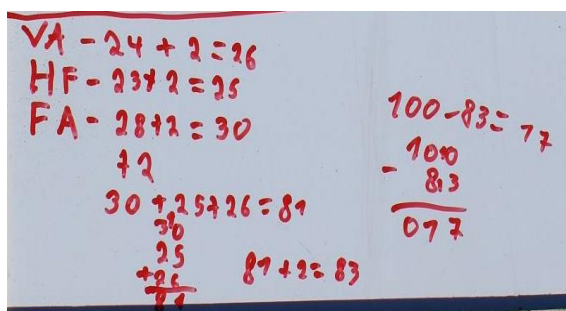 VA - 24 + 2 = 26
HF - 23+2 = 25
FA - 28+2 = 30
+2
30 + 25+26 = 81
30
25
+26
81
81+2= 83
100-83= 17
100
- 83
017